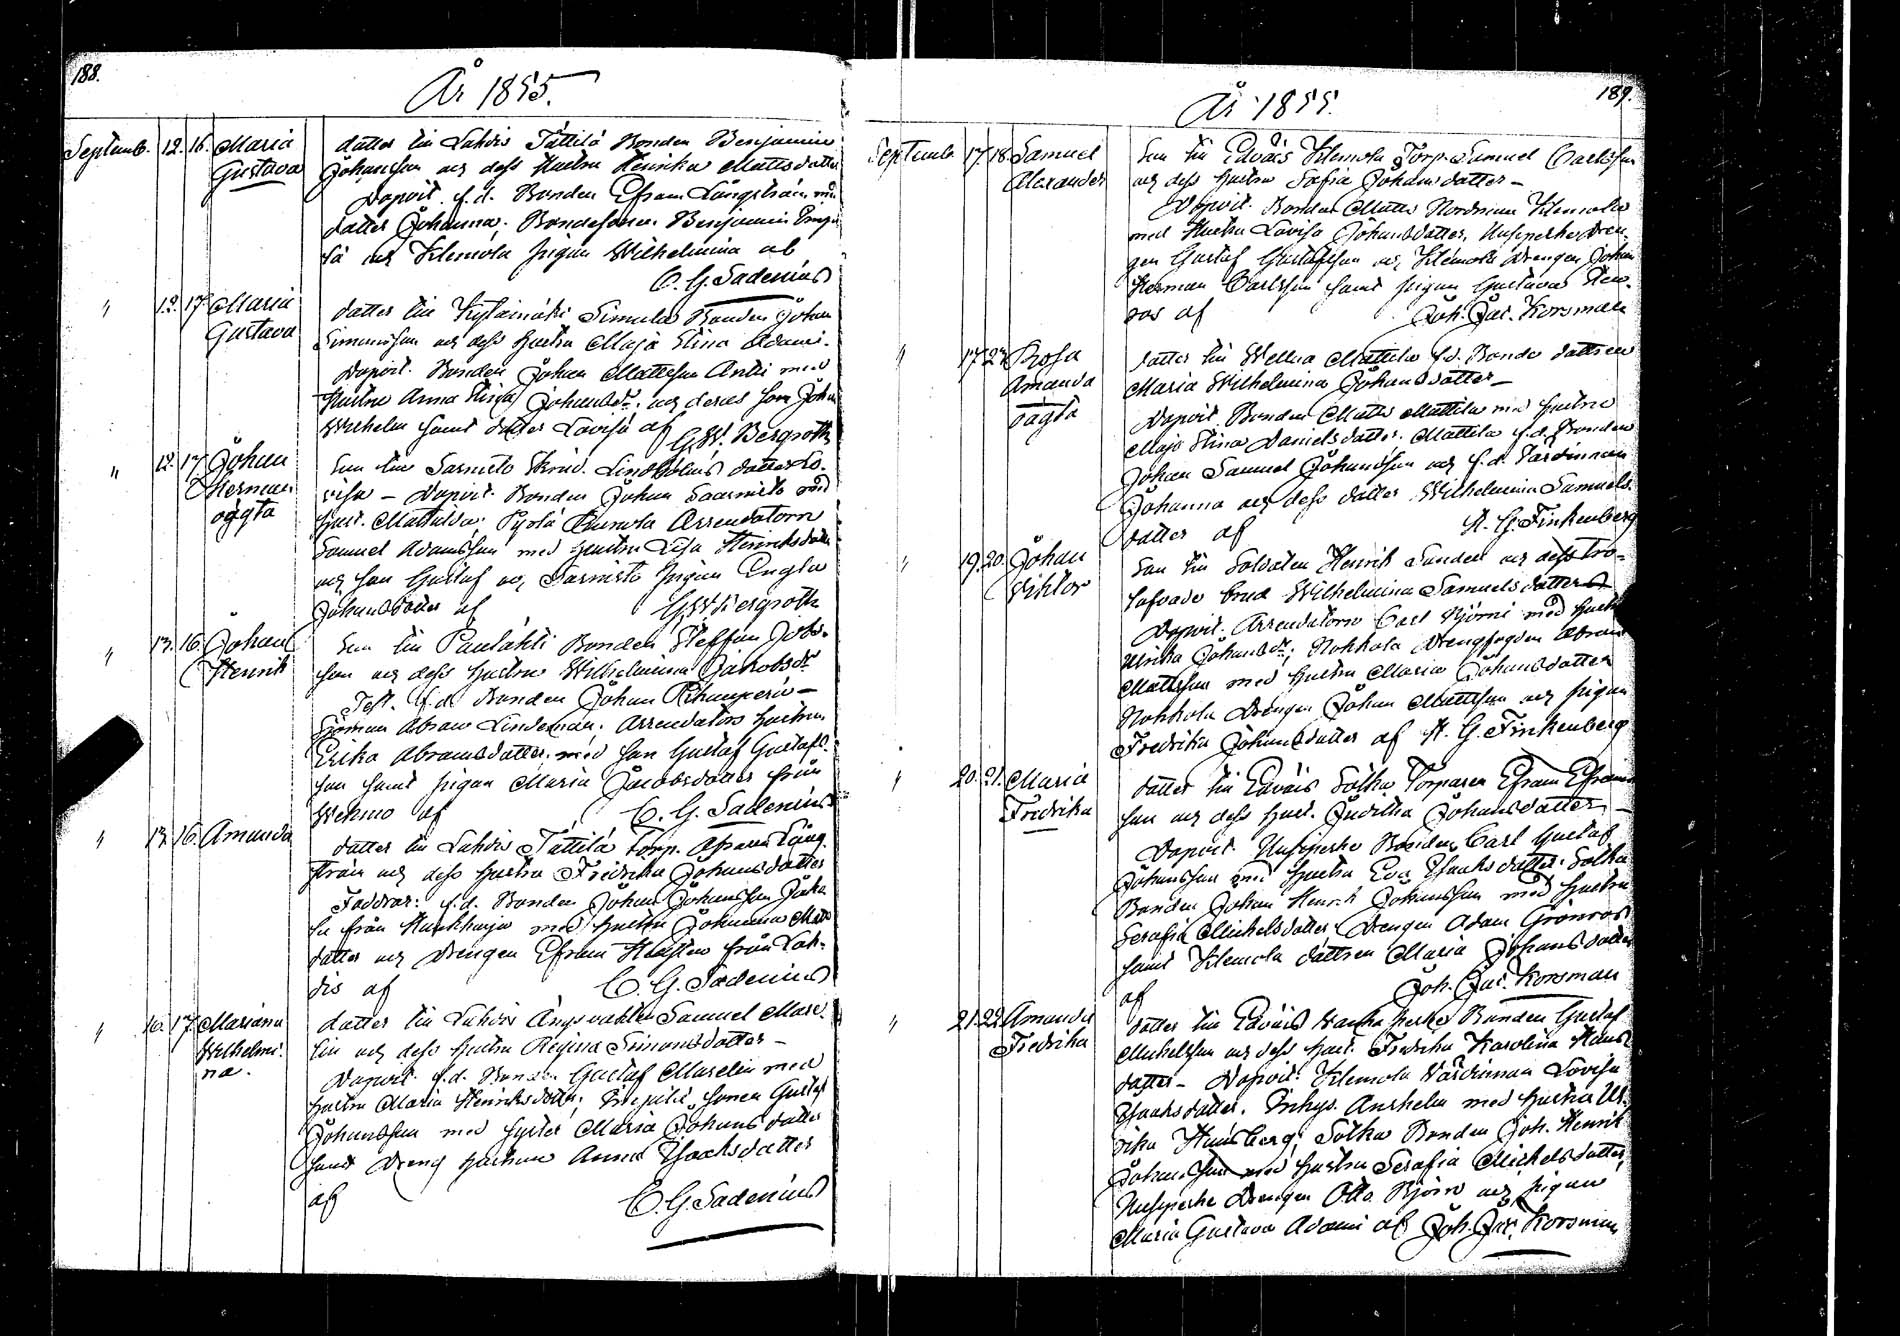 188.
År 1855.
Septemb. 12. 16. Maria Gustava
dotter till Lahdis Tättilä Bonden Benjamin
Johansson och dess Hustru Henrika Mattsdotter
Dopvit. f.d. Bonden Efraim Långsträm med
dotter Johanna; Bondesonen Benjamin
och Klemola pigan Wilhelmina af
C. G. Sadenius
" 12. 17. Maria Gustava
dotter till Simula Bonden Johan
Simonsson och dess hustru Maja Stina Adami.
Dopvit. Bonden Johan Mattsson Antti med
Hustru Anna Johansdr. och deras son Johan
Wilhelm samt dotter Lovisa af
G.W. Bergroth
" 12. 17. Johan Herman oägta
Son till Sarnisto Lindholms dotter Lo-
visa – Dopvit. Bonden Johan Saarnisto med
hust. Mathilda; Pyölä Arrendatorn
Samuel Adamsson med hustru Lisa Henriksdotter
och son Gustaf och Sarnisto pigan Engla
Johansdotter af G W Bergroth
" 13. 16. Johan Henrik
Son till Paulahti Bonden Steffan
son och dess hustru Wilhelmina Jakobsdr
Test. f.d. Bonden Johan –
Abram Lindeman. Arrendators hustrun
Erika Abramsdotter med son Gustaf Gustafs-
son samt pigan Maria Jacobsdotter från
Wehmo af C. G. Sadenius
" 13. 16. Amanda
dotter till Lahdis Tättilä Torp. Lång-
sträm och dess hustru Fredrika Johansdotter
Faddrar: f.d. Bonden Johan Johansson
från med hustru Johanna Matts
dotter och Drengen Efraim från Lah-
dis af C. G. Sadenius
" 16. 17. Mariana Wilhelmi-na.
dotter till Lahdis Samuel Mase-
lin och dess hustru Regina Simonsdotter –
Dopvit. f.d. Bonden Gustaf Maselin med
hustru Maria Henriksdotter; sonen Gustaf
Johansson med syster Maria Johansdotter
samt Dreng hustrun Anna Isaksdotter
af C. G. Sadenius
189.
År 1855.
Septemb 17. 18. Samuel Alexander
Son till Edväis Klemola Torp. Samuel Carlsson
och dess hustru Sofia Johansdotter –
Dopvit. Bonden Matts Nordman Klemola
med Hustru Lovisa Johansdotter, Uusiperhe Dren-
gen Gustaf Gustafsson och Klemola Drengen Johan
Herman Carlsson samt pigan Gustava
af Joh. Jac. Korsman
" 17. 23. Rosa Amanda oägta
dotter till Wellua Mattila f.d. Bonde dottren
Maria Wilhelmina Johansdotter –
Dopvit. Bonden Matts Mattila med hustru
Maja Stina Danielsdotter. Mattila f.d. Bonden
Johan Samuel Johansson och f.d. Värdinnan
Johanna och dess dotter Wilhelmina Samuels-
dotter af A. G. Finkenberg
" 19. 20. Johan Viktor
Son till Soldaten Henrik Sunden och dess tro-
lofvade brud Wilhelmina Samuelsdotter
Dopvit. Arrendatorn Carl Björni med hustru
Ulrika Johansdr; Nohkola Drengfogden Abram
Mattsson med hustru Maria Johansdotter
Nohkola Drengen Johan Mattsson och pigan
Fredrika Johansdotter af A. G. Finkenberg
" 20. 21. Maria Fredrika
dotter till Edväis Sålka Torparen Efraim Efraims
son och dess hust. Juditha Johansdotter –
Dopvit. Uusiperhe Bonden Carl Gustaf
Johansson med hustru Eva Isaksdotter. Sålka
Bonden Johan Henrik Johansson med hustru
Serafia Michelsdotter. Drengen Adam Grönros
samt Klemola dottren Maria Johansdotter
af Joh. Jac. Korsman
" 21. 22. Amanda Fredrika
dotter till Edväis Wanha perhe Bonden Gustaf
Michelsson och dess hust. Fredrika Karolina Hans
dotter – Dopvit: Klemola Värdinnan Lovisa
Isaksdotter. Inhys. Anshelm med hustru Ul-
rika; Sålka Bonden Joh. Henrik
Johansson med hustru Serafia Michelsdotter,
Uusiperhe Drengen Otto Björn och pigan
Maria Gustava Adami af Joh. Jac. Korsman